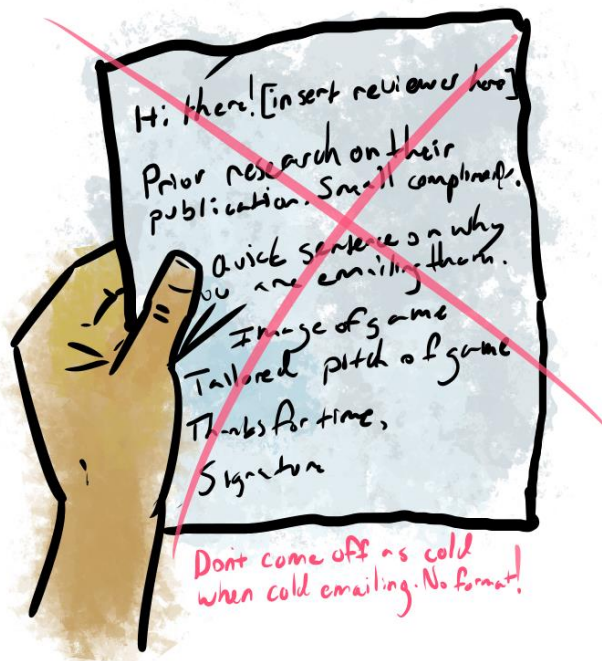 Hi there! [insert reviewer here]
Prior research on their
publication. Small compliments.
Quick sentence on why
you are emailing them.
Image of game
Tailored pitch of game
Thanks for time,
Signature
Dont come off as cold
when cold emailing. No format!